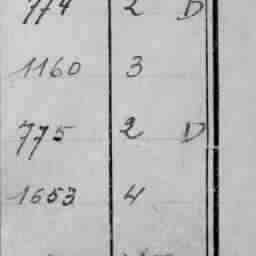 774 2 D
1160 3
775 2 D
1653 4